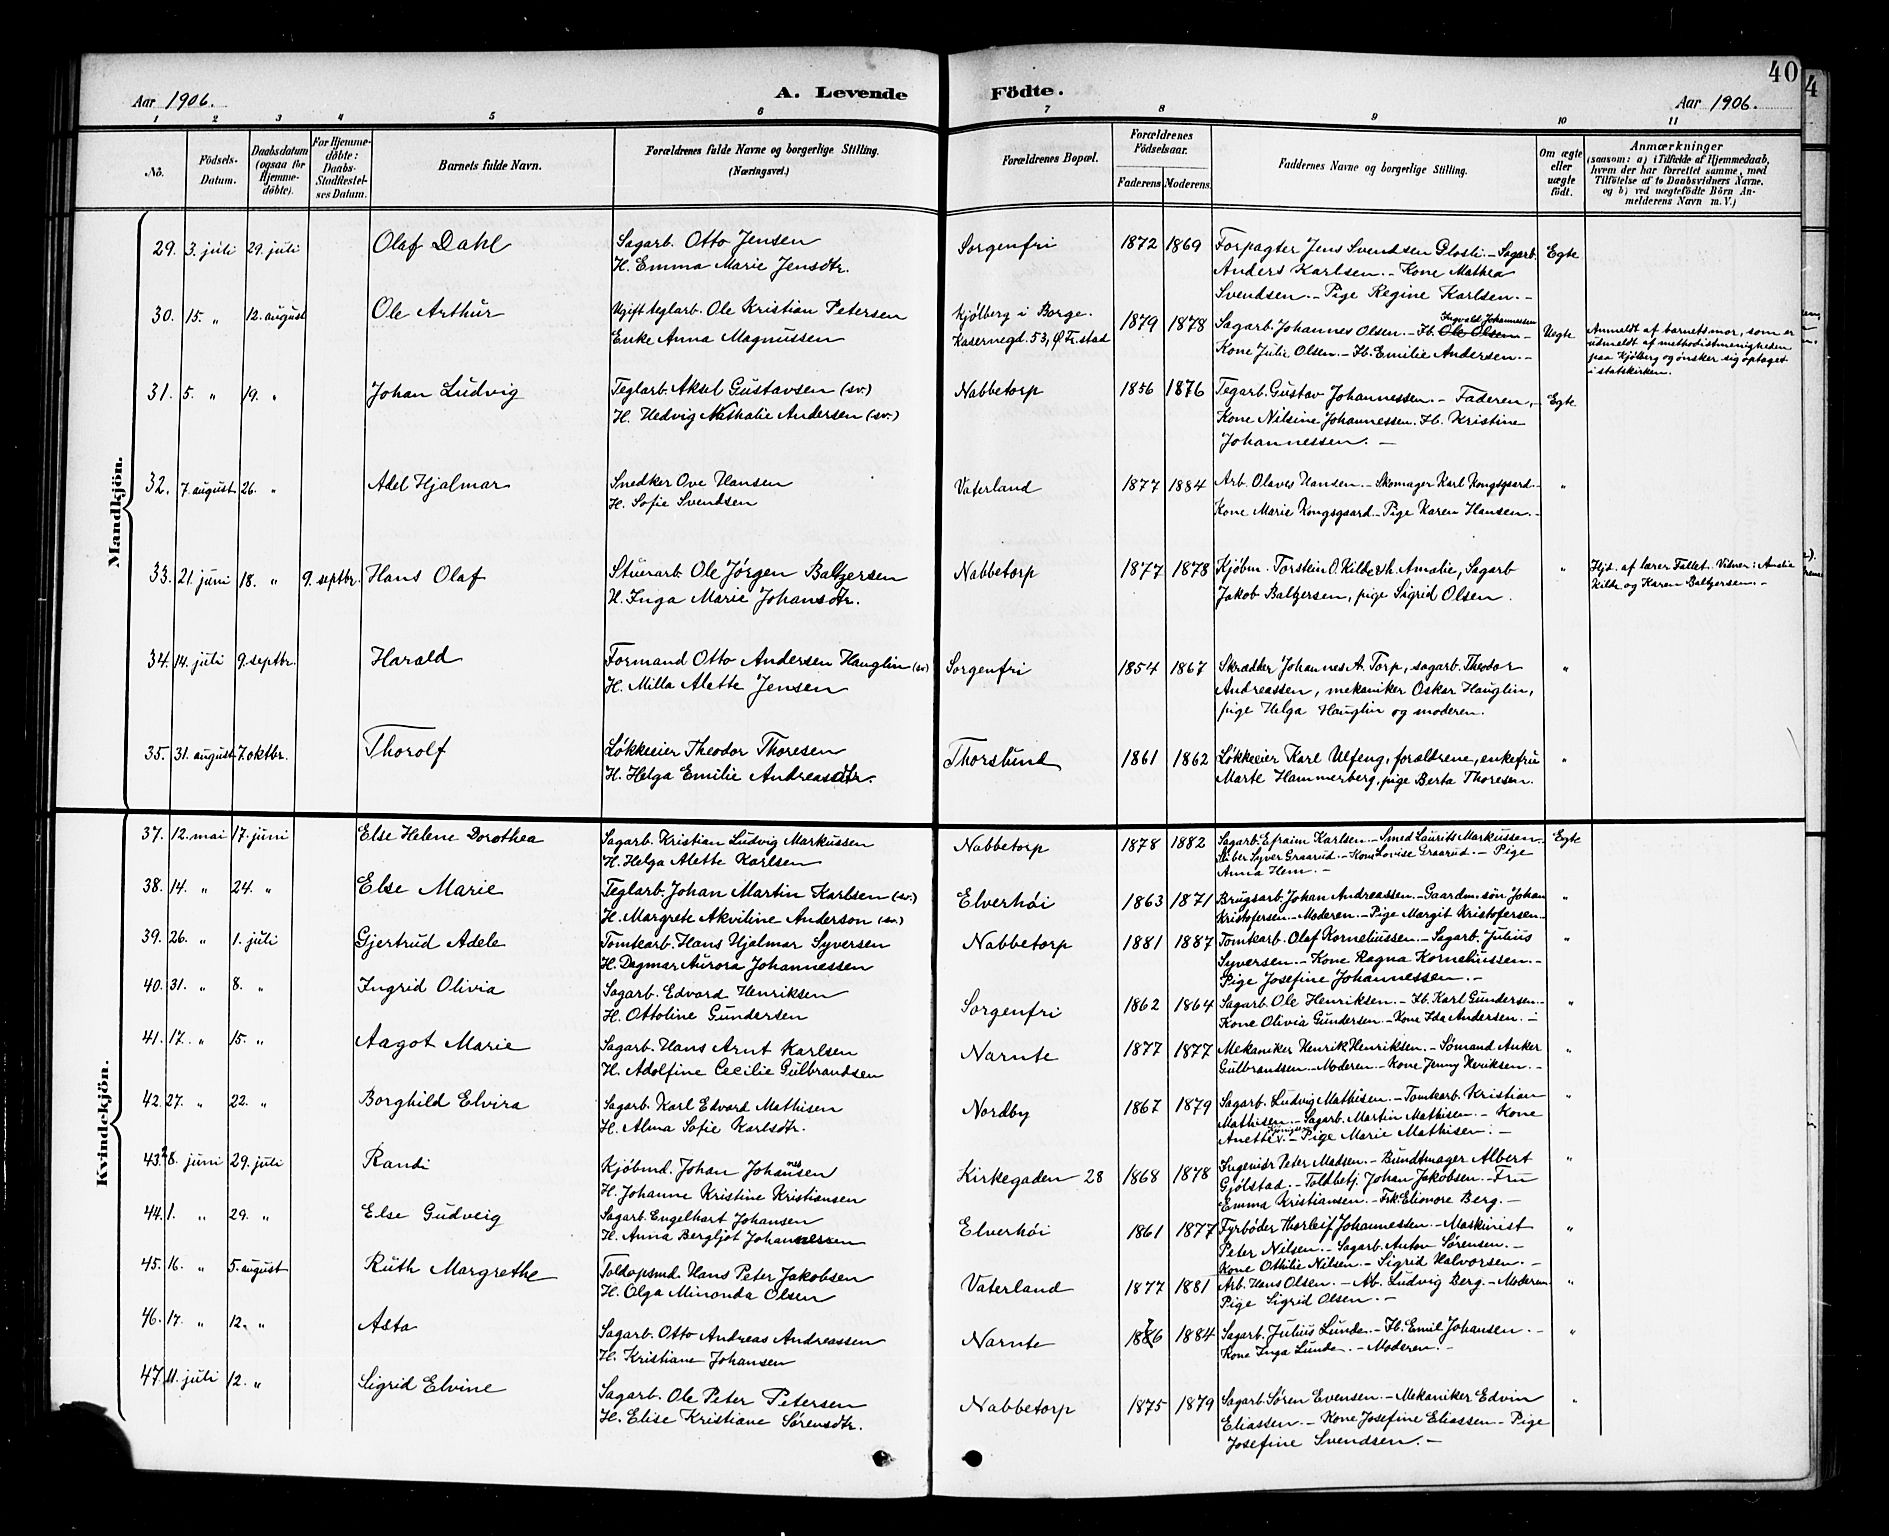 40
4
Aar 1906.
A. Levende Födte.
Aar 1906.
1 2 3 4 5 6 7 8 9 10 11
No.
Födsels-Datum.
Daabsdatum (ogsaa för Hjemme-döbte).
For Hjemme-döbte: Daabs-Stadfestel-ses Datum.
Barnets fulde Navn.
Forældrenes fulde Navne og borgerlige Stilling. (Næringsvei.)
Forældrenes Bopæl.
Forældrenes Födselsaar.
Faderens. Moderens.
Faddernes Navne og borgerlige Stilling.
Om ægte eller uægte födt.
Anmærkninger
(saasom: a) i Tilfælde af Hjemmedaab, hvem der har forrettet samme, med Tilföielse af to Daabsvidners Navne, og b) ved uægtefödte Börn An-melderens Navn m. V.)
Mandkjön.
29. 3. juli 29. juli Olaf Dahl Sagarb. Otto Jensen Sorgenfri 1872 1869 Forpagter Jens Svendsen Glosli. – Sagarb. Egte
H. Emma Marie Jensdtr. Anders Karlsen. – Kone Mathea
Svendsen. – Pige Regine Karlsen. –
30. 15. „ 12. august Ole Arthur Ugift teglarb. Ole Kristian Petersen Kjølberg i Borge. 1879 1878 Sagarb. Johannes Olsen. – Fb. Ole Olsen Ingvald Johannessen – Uegte Anmeldt af barnets mor, som er
Enke Anna Magnussen Kasernegd. 53, Ø Fr.stad Kone Julie Olsen. – Fb. Emilie Andersen. – udmeldt af methodistmenigheden
paa Kjølberg og ønsker sig optaget
i statskirken.
31. 5. „ 19. „ Johan Ludvig Teglarb. Aksel Gustavsen (sv.) Nabbetorp 1856 1876 Tegarb. Gustav Johannessen. – Faderen, – Egte
H. Hedvig Nathalie Andersen (sv.) Kone Nilsine Johannessen. Fb. Kristine
Johannessen. –
32. 7. august 26. „ Adel Hjalmar Snedker Ove Hansen Vaterland 1877 1884 Arb. Olaves Hansen. – Skomager Karl Kongsgaard. – „
H. Sofie Svendsen Kone Marie Kongsgaard. – Pige Karen Hansen. –
33. 21. juni 18. „ 9. septbr. Hans Olaf Stuerarb. Ole Jørgen Baltzersen Nabbetorp 1877 1878 Kjøbm. Torstein O. Kilde & h. Amalie, Sagarb „ Hjd. af lærer Fallet. Vidner: Amalie
H. Inga Marie Johansdtr. Jakob Baltzersen, pige Sigrid Olsen. Kilde og Karen Baltzersen. –
34. 14. juli 9. septbr. Harald Formand Otto Andersen Hauglin (sv) Sorgenfri 1854 1867 Skrædder Johannes A. Torp, sagarb. Theodor „
H. Milla Alette Jensen Andreassen, mekaniker Oskar Hauglin,
pige Helga Hauglin og moderen.
35. 31. august 7. oktbr. Thorolf Løkkeeier Theodor Thoresen Thorslund 1861 1862 Løkkeeier Karl Ulfeng, forældrene, enkefru „
H. Helga Emilie Andreasdtr. Marte Hammerberg, pige Berta Thoresen.
Kvindekjön.
37. 12. mai 17. juni Else Helene Dorothea Sagarb. Kristian Ludvig Markussen Nabbetorp 1878 1882 Sagarb. Efraim Karlsen – Smed Laurits Markussen. Egte
H. Helga Alette Karlsen Støber Syver Graarud. – Kone Lovise Graarud. – Pige
Anna Hem. –
38. 14. „ 24. „ Else Marie Teglarb. Johan Martin Karlsen (sv.) Elverhøi 1863 1871 Brugsarb. Johan Andreassen. – Gaardm. søn Johan „
H. Margrete Akviline Anderson (sv.) Kristofersen. – Moderen. – Pige Margit Kristofersen. –
39. 26. „ 1. juli Gjertrud Adele Tomtearb. Hans Hjalmar Syversen Nabbetorp 1881 1887 Tomtearb. Olaf Korneliussen. – Sagarb. Julius „
H. Dagmar Aurora Johannessen Syversen. – Kone Ragna Korneliussen. –
Pige Josefine Johannessen. –
40. 31. „ 8. „ Ingrid Olivia Sagarb. Edvard Henriksen Sorgenfri 1862 1864 Sagarb. Ole Henriksen. – Fb. Karl Gundersen. – „
H. Ottoline Gundersen Kone Olivia Gundersen. – Kone Ida Andersen. –
41. 17. „ 15. „ Aagot Marie Sagarb. Hans Arnt Karlsen Narnte 1877 1877 Mekaniker Henrik Henriksen. – Sømand Anker „
H. Adolfine Cecilie Gulbrandsen Gulbrandsen. – Moderen. – Kone Jenny Henriksen. –
42. 27. „ 22. „ Borghild Elvira Sagarb. Karl Edvard Mathisen Nordby 1867 1879 Sagarb. Ludvig Mathisen. – Tomtearb. Kristian „
H. Alma Sofie Karlsdtr. Mathisen. – Sagarb. Martin Mathisen. – Kone
Anette – Pige Marie Mathisen. –
43. 8. juni 29. juli Randi Kjøbmd. Johan Johannesen Kirkegaden 28 1868 1878 Ingeniør Peter Madsen. – Bundtmager Albert „
H. Johanne Kristine Kristiansen Gjølstad. – Toldbetj. Johan Jakobsen. – Fru
Emma Kristiansen. – Frk. Elionore Berg. –
44. 1. „ 29. „ Else Gudveig Sagarb. Engelhart Johansen Elverhøi 1861 1877 Fyrbøder Thorleif Johannessen. – Maskinist „
H. Anna Bergljot Johannessen Peter Nilsen. – Sagarb. Anton Sørensen. –
Kone Othilie Nilsen. – Sigrid Halvorsen. –
45. 16. „ 5. august Ruth Margrethe Toldopsmd. Hans Peter Jakobsen Vaterland 1877 1881 Arb. Hans Olsen. – Ab. Ludvig Berg. – Moderen. „
H. Olga Minonda Olsen Pige Sigrid Olsen. –
46. 17. „ 12. „ Asta Sagarb. Otto Andreas Andreassen Narnte 1876 1884 Sagarb. Julius Lunde. – Fb. Emil Johansen. – „
H. Kristiane Johansen Kone Inga Lunde. – Moderen. –
47. 11. juli 12. „ Sigrid Elvine Sagarb. Ole Peter Petersen Nabbetorp 1875 1879 Sagarb. Søren Evensen. – Mekaniker Edvin „
H. Elise Kristiane Sørensdtr. Eliassen. – Kone Josefine Eliassen. – Pige
Josefine Svendsen. –